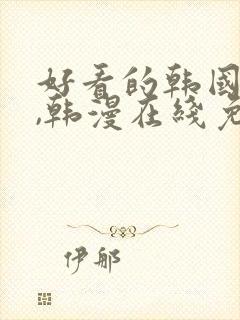 好看的韩国
,韩漫在线免
伊那